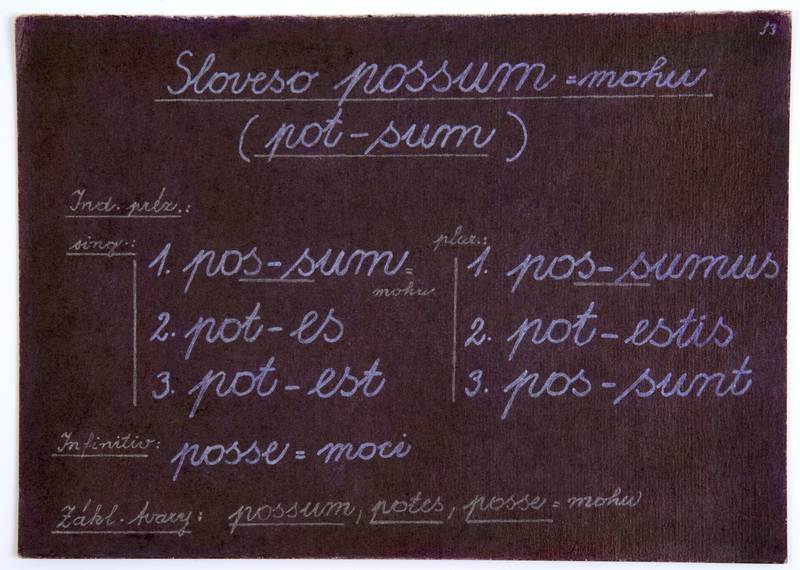 53
Sloveso possum = mohu
(pot-sum)
Ind. préz.:
sing.: plur.:
1. pos-sum = mohu 1. pos-sumus
2. pot-es 2. pot-estis
3. pot-est 3. pos-sunt
Infinitiv: posse = moci
Zákl. tvary: possum, potes, posse = mohu